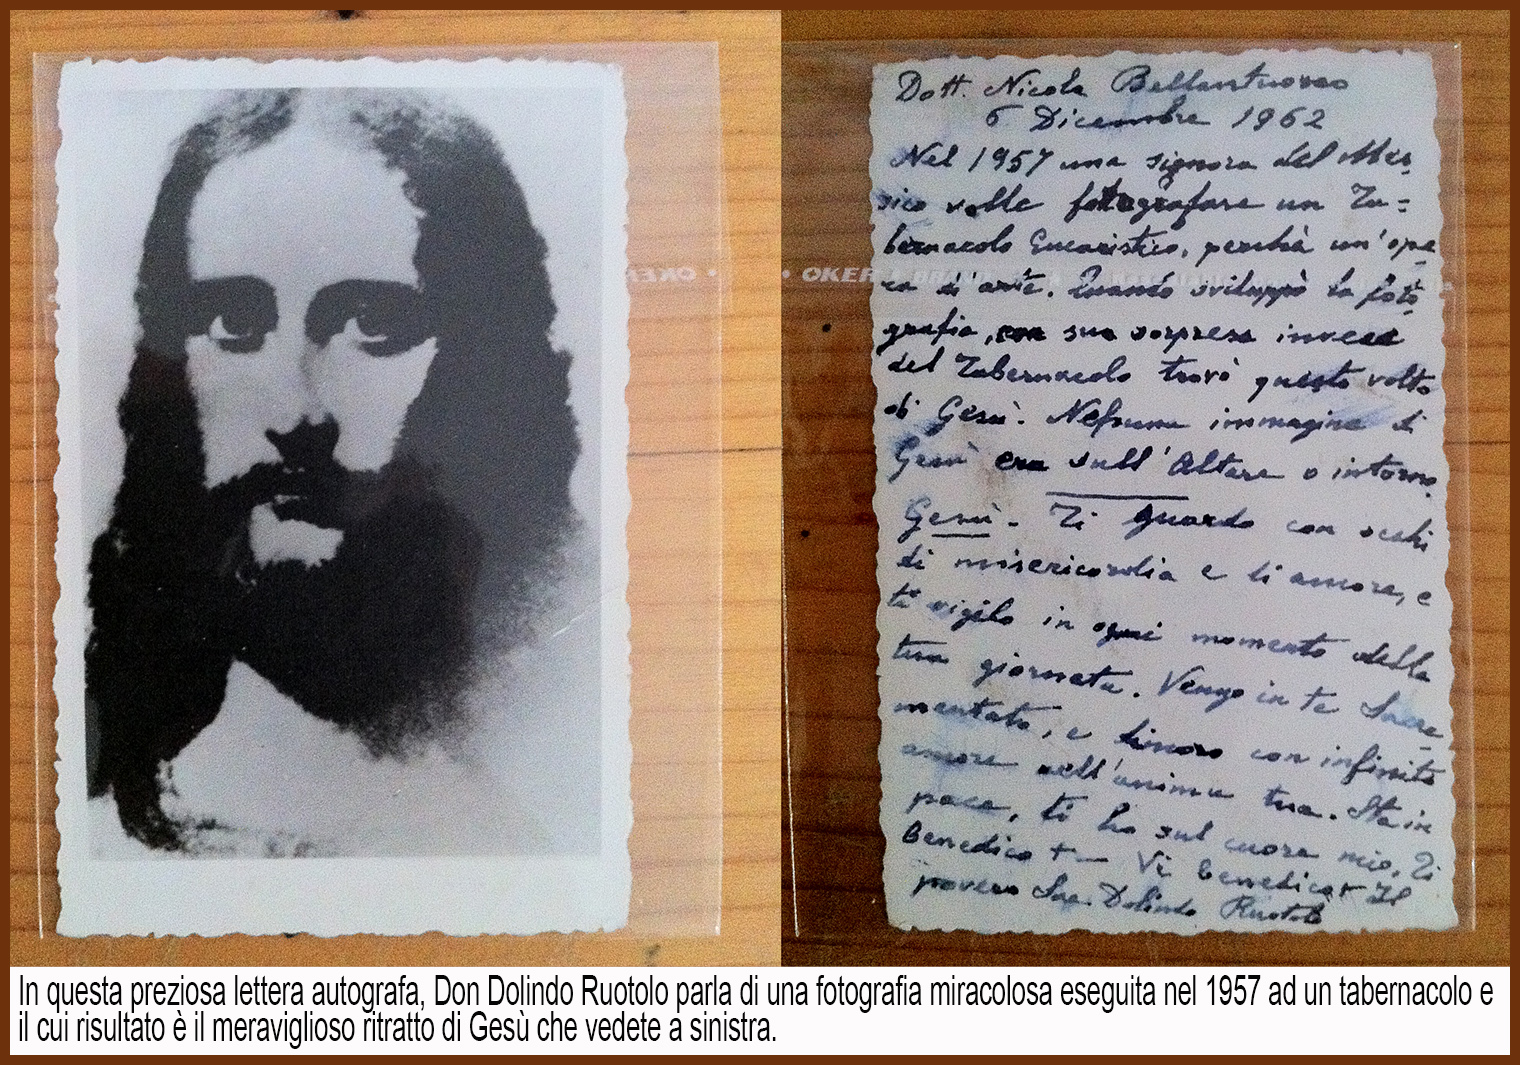 Dott. Nicola Bellantuono
6 Dicembre 1962
Nel 1957 una signora del Mes-
sico volle fotografare un Ta=
bernacolo Eucaristico, perchè un'ope
ra di arte. Quando sviluppò la foto
grafia, con sua sorpresa invece
del Tabernacolo trovò questo volto
di Gesù. Nessuna immagine di
Gesù era sull'Altare o intorno.
Gesù - Ti guardo con occhi
di misericordia e di amore, e
ti vigilo in ogni momento della
tua giornata. Vengo in te Sacra
mentato, e dimoro con infinito
amore nell'anima tua. Sta in
pace, ti ho sul cuore mio. Ti
Benedico + Vi benedico + Il
povero Sac. Dolindo Ruotolo
OKER
In questa preziosa lettera autografa, Don Dolindo Ruotolo parla di una fotografia miracolosa eseguita nel 1957 ad un tabernacolo e
il cui risultato è il meraviglioso ritratto di Gesù che vedete a sinistra.